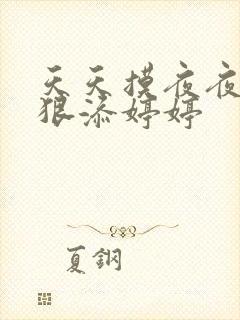 天天摸夜夜
狠添婷婷
夏鋼